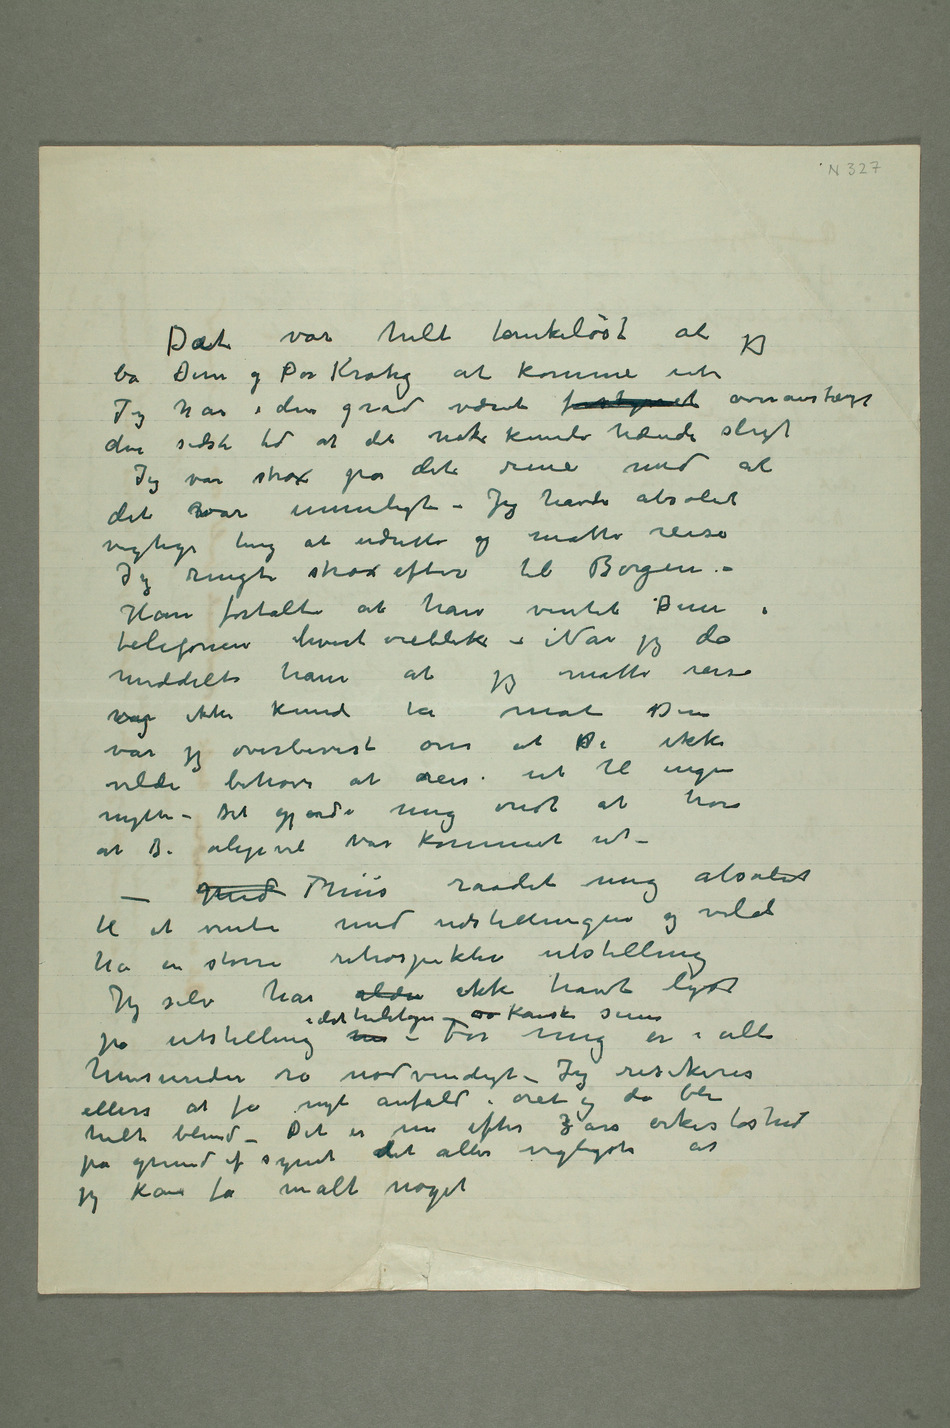 N 327
Det var helt tankeløst at jeg
ba Dem og Per Krohg at komme ut
Jeg har i den grad været forstyrret overanstrægt
den sidste tid at det nok kunde hænde sligt
Jeg var strax på det rene med at
det var umuligt – Jeg havde absolut
vigtige ting at udrette og måtte reise
Jeg ringte strax efter til Borgen. –
Han fortalte at han ventet Dem i
telefonen hvert øieblik – Når jeg da
meddelte ham at jeg måtte reise
og ikke kunde ta mot Dem
var jeg overbevist om at De ikke
vilde behøve at reise ut til ingen
nytte – Det gjorde mig ondt at høre
at De alligevel var kommet ut –
– Thiis raadet mig absolut
til at vente med udstillingen og vilde
ha en større retrospektiv utstilling
Jeg selv har ikke havt lyst
i det hele tagen – Kanske senere
på utstilling nu – For mig er i alle
henseender ro nødvendigt – Jeg risikerer
ellers at få nyt anfald i øiet og da bli
helt blind – Det er nu efter 3 års ørkesløshed
på grund af synet det aller vigtigste at
jeg kan få malt noget